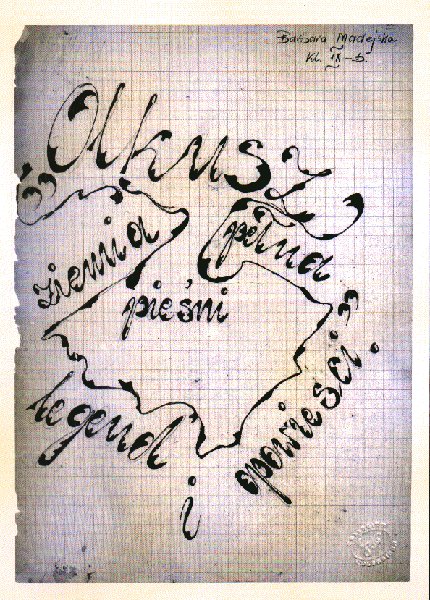 Barbara Madejska
Kl. IX-b.
„Olkusz
ziemia pełna
pieśni
legend i opowieści.”